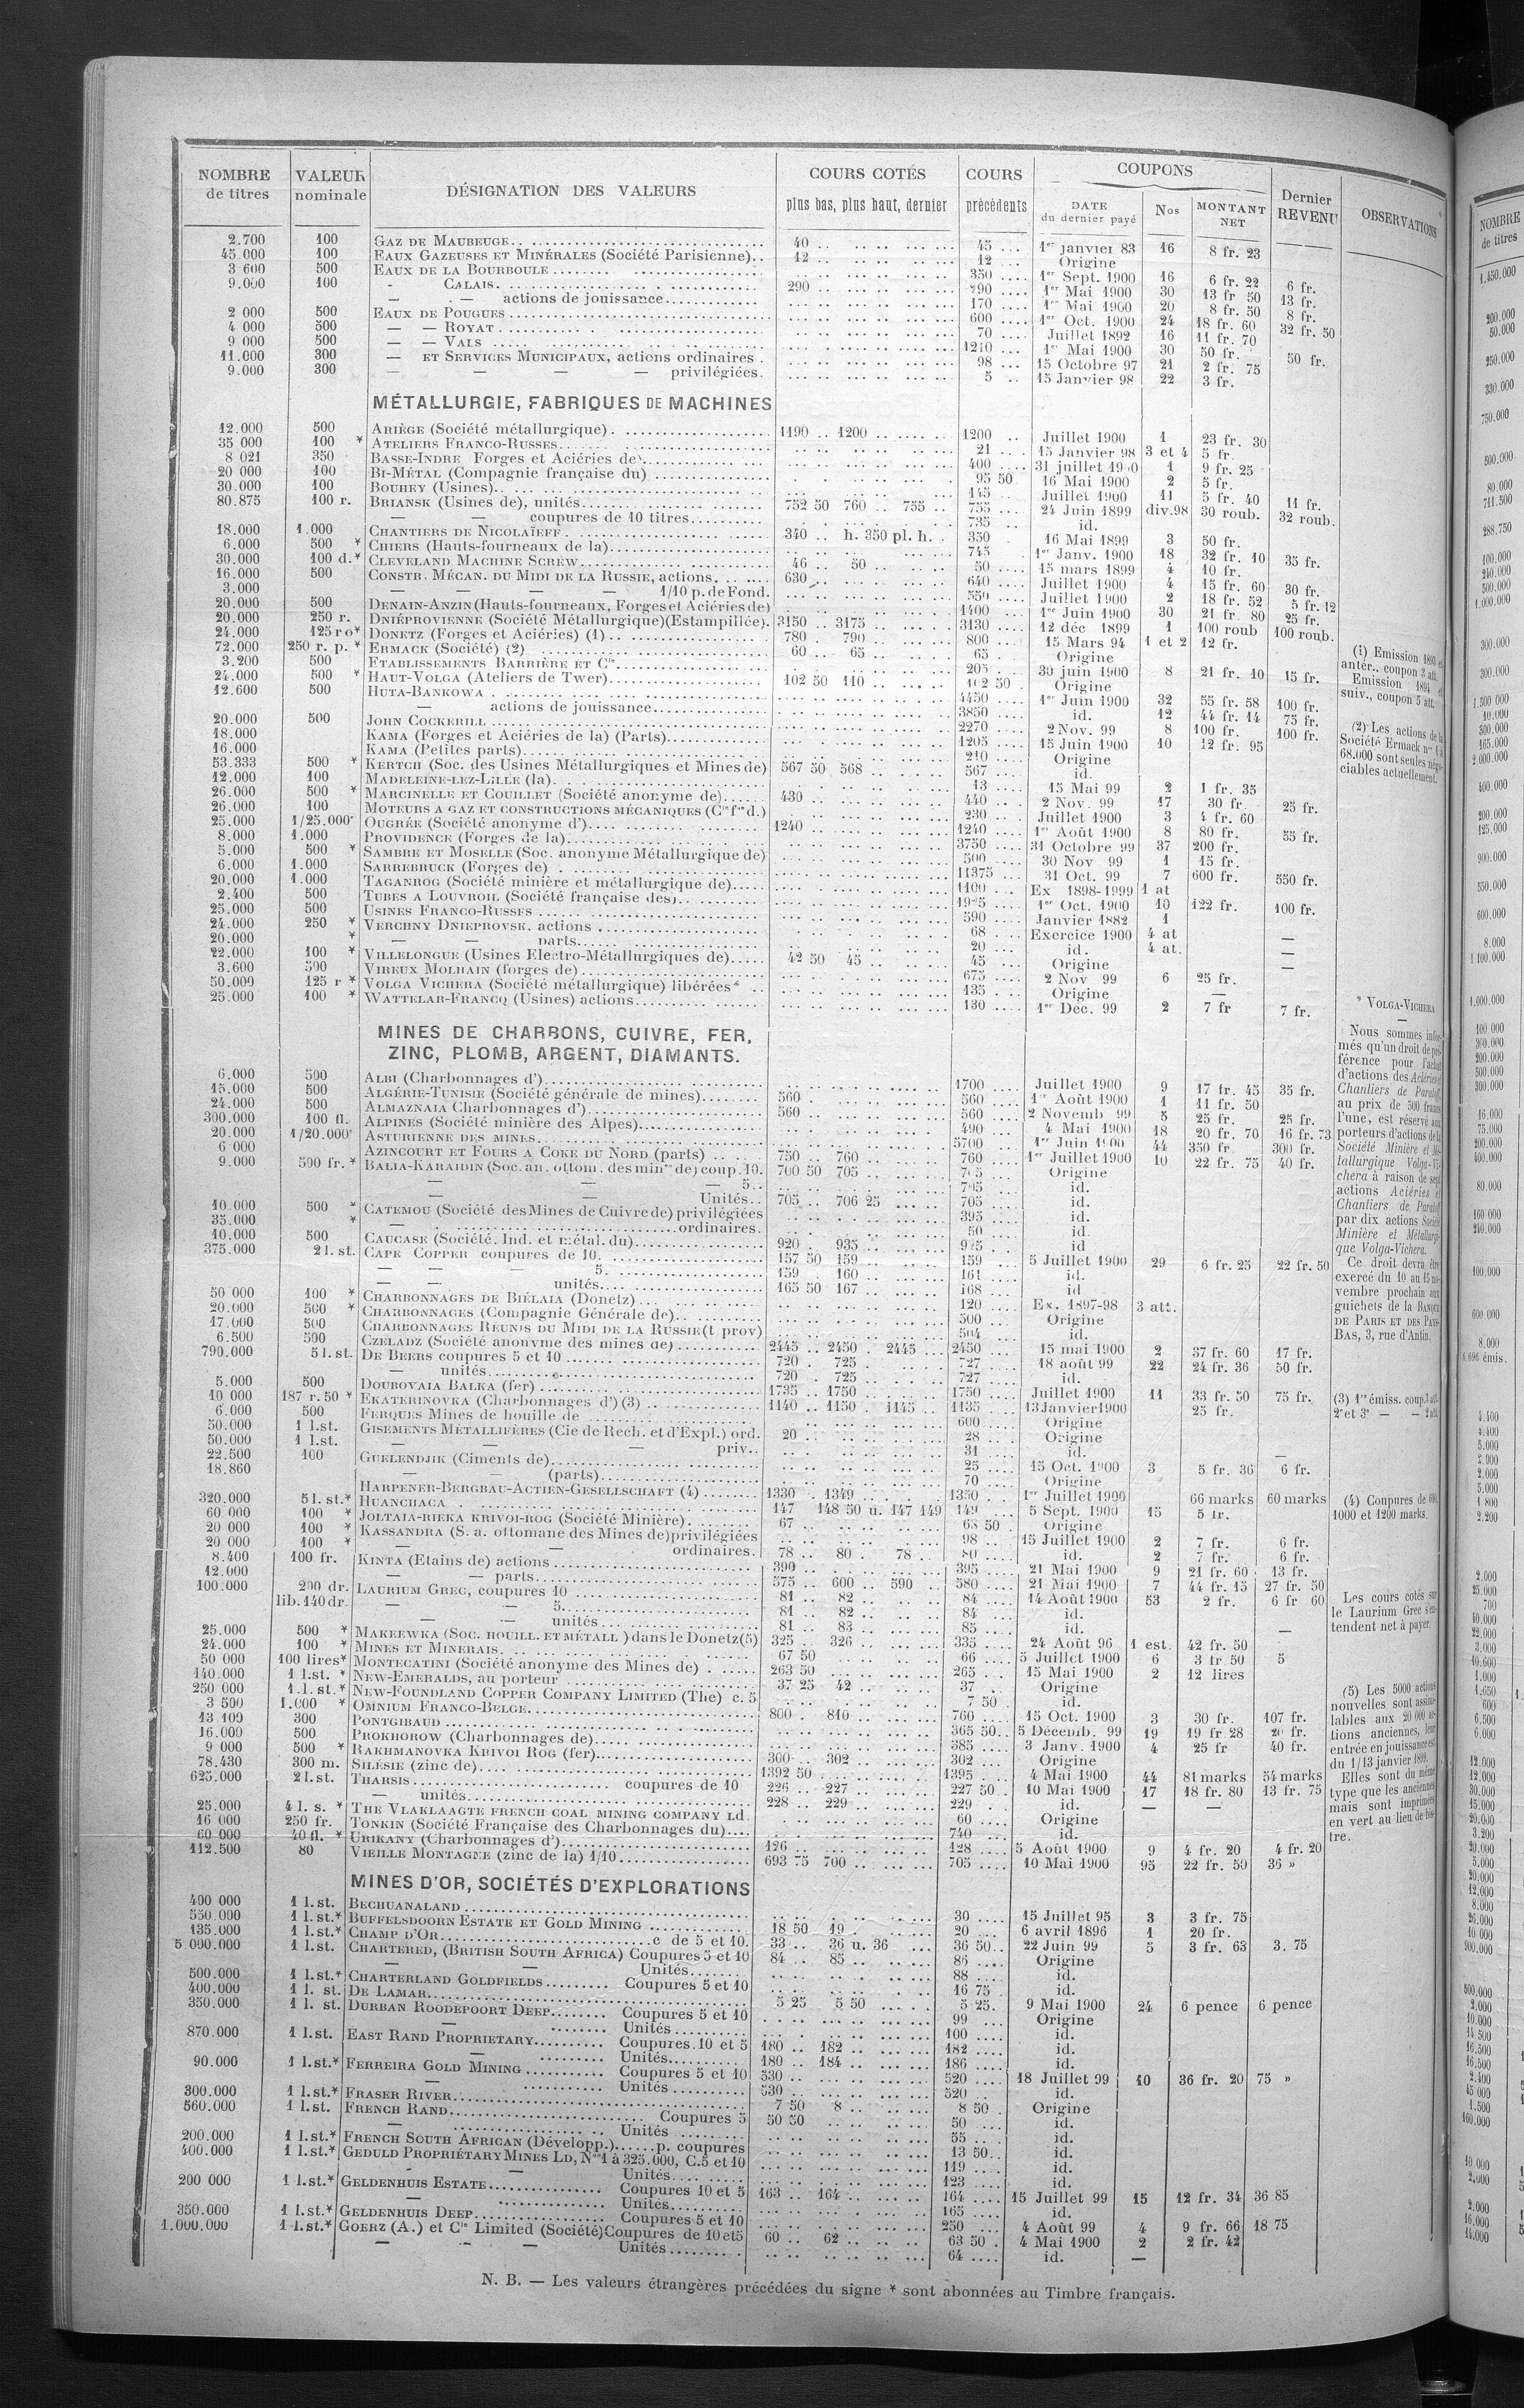 NOMBRE de titres | VALEUR nominale | DÉSIGNATION DES VALEURS | COURS COTÉS plus bas, plus haut, dernier | COURS précédents | COUPONS DATE du dernier payé | Nos | MONTANT NET | Dernier REVENU | OBSERVATIONS
2.700 100 GAZ DE MAUBEUGE 40 45 1er janvier 83 16 8 fr. 23
45.000 100 EAUX GAZEUSES ET MINÉRALES (Société Parisienne) 12 12 Origine
3 600 500 EAUX DE LA BOURBOULE 350 1er Sept. 1900 16 6 fr. 22 6 fr.
9.000 100 - CALAIS 290 290 1er Mai 1900 30 13 fr 50 13 fr.
— — actions de jouissance 170 1er Mai 1900 20 8 fr. 50 8 fr.
2 000 500 EAUX DE POUGUES 600 1er Oct. 1900 24 18 fr. 60 32 fr. 50
4 000 500 — — ROYAT 70 Juillet 1892 16 11 fr. 70
9 000 500 — — VALS 1210 1er Mai 1900 30 50 fr. 50 fr.
11.000 300 — ET SERVICES MUNICIPAUX, actions ordinaires . 98 15 Octobre 97 21 2 fr. 75
9.000 300 — — — — privilégiées. 5 15 Janvier 98 22 3 fr.
MÉTALLURGIE, FABRIQUES DE MACHINES
12.000 500 ARIÈGE (Société métallurgique) 1190 1200 1200 Juillet 1900 1 23 fr. 30
35 000 100 * ATELIERS FRANCO-RUSSES 21 15 Janvier 98 3 et 4 5 fr.
8 021 350 BASSE-INDRE Forges et Aciéries de) 400 31 juillet 1900 1 9 fr. 25
20 000 100 BI-MÉTAL (Compagnie française du) 95 50 16 Mai 1900 2 5 fr.
30.000 100 BOUHEY (Usines) 145 Juillet 1900 11 5 fr. 40 11 fr.
80.875 100 r. BRIANSK (Usines de), unités 752 50 760 755 755 24 Juin 1899 div.98 30 roub. 32 roub.
— — coupures de 10 titres 735 id.
18.000 1.000 CHANTIERS DE NICOLAÏEFF 340 h. 350 pl. h. 350 16 Mai 1899 3 50 fr.
6.000 500 * CHIERS (Hauts-fourneaux de la) 745 1er Janv. 1900 18 32 fr. 10 35 fr.
30.000 100 d.* CLEVELAND MACHINE SCREW 46 50 50 15 mars 1899 4 10 fr.
16.000 500 CONSTR. MÉCAN. DU MIDI DE LA RUSSIE, actions 630 640 Juillet 1900 4 15 fr. 60 30 fr.
3.000 — — — — 1/10 p. de Fond. 550 Juillet 1900 2 18 fr. 52 5 fr. 12
20.000 500 DENAIN-ANZIN (Hauts-fourneaux, Forges et Aciéries de) 1400 1er Juin 1900 30 21 fr. 80 25 fr.
20.000 250 r. DNIÉPROVIENNE (Société Métallurgique)(Estampillée). 3150 3175 3130 12 déc 1899 1 100 roub 100 roub.
24.000 125 ro* DONETZ (Forges et Aciéries) (1) 780 790 800 15 Mars 94 1 et 2 12 fr.
72.000 250 r. p. * ERMACK (Société) (2) 60 65 65 Origine
3.200 500 ETABLISSEMENTS BARRIÈRE ET Cie 205 30 juin 1900 8 21 fr. 10 15 fr.
24.000 500 * HAUT-VOLGA (Ateliers de Twer) 102 50 110 102 50 Origine
12.600 500 HUTA-BANKOWA 4450 1er Juin 1900 32 55 fr. 58 100 fr.
— actions de jouissance 3850 id. 12 44 fr. 14 75 fr.
20.000 500 JOHN COCKERILL 2270 2 Nov. 99 8 100 fr. 100 fr.
18.000 KAMA (Forges et Aciéries de la) (Parts) 1205 15 Juin 1900 10 12 fr. 95
16.000 KAMA (Petites parts) 210 Origine
53.333 500 * KERTCH (Soc. des Usines Métallurgiques et Mines de) 567 50 568 567 id.
12.000 100 MADELEINE-LEZ-LILLE (la) 13 15 Mai 99 2 1 fr. 35
26.000 500 * MARCINELLE ET COUILLET (Société anonyme de) 430 440 2 Nov. 99 17 30 fr. 25 fr.
26.000 100 MOTEURS A GAZ ET CONSTRUCTIONS MÉCANIQUES (Cie fse d.) 230 Juillet 1900 3 4 fr. 60
25.000 1/25.000e OUGRÉE (Société anonyme d') 1240 1240 1er Août 1900 8 80 fr. 55 fr.
8.000 1.000 PROVIDENCE (Forges de la) 3750 31 Octobre 99 37 200 fr.
5.000 500 * SAMBRE ET MOSELLE (Soc. anonyme Métallurgique de) 500 30 Nov 99 1 15 fr.
6.000 1.000 SARREBRUCK (Forges de) 11375 31 Oct. 99 7 600 fr. 550 fr.
20.000 1.000 TAGANROG (Société minière et métallurgique de) 1100 Ex 1898-1999 1 at
2.400 500 TUBES A LOUVROIL (Société française des) 1925 1er Oct. 1900 10 122 fr. 100 fr.
25.000 500 USINES FRANCO-RUSSES 590 Janvier 1882 1
24.000 250 * VERCHNY DNIEPROVSK, actions 68 Exercice 1900 4 at —
20.000 * — — parts 20 id. 4 at. —
22.000 100 * VILLELONGUE (Usines Electro-Métallurgiques de) 42 50 45 45 Origine —
3.600 500 VIREUX MOLHAIN (forges de) 675 2 Nov 99 6 25 fr.
50.000 125 r * VOLGA VICHERA (Société métallurgique) libérées* 135 Origine —
25.000 100 * WATTELAR-FRANCQ (Usines) actions 130 1er Déc. 99 2 7 fr 7 fr.
MINES DE CHARBONS, CUIVRE, FER,
ZINC, PLOMB, ARGENT, DIAMANTS.
6.000 500 ALBI (Charbonnages d') 1700 Juillet 1900 9 17 fr. 45 35 fr.
15.000 500 ALGÉRIE-TUNISIE (Société générale de mines) 560 560 1er Août 1900 1 11 fr. 50
24.000 500 ALMAZNAIA Charbonnages d') 560 560 2 Novemb 99 5 25 fr. 25 fr.
300.000 100 fl. ALPINES (Société minière des Alpes) 490 4 Mai 1900 18 20 fr. 70 16 fr. 73
20.000 1/20.000e ASTURIENNE DES MINES 5700 1er Juin 1900 44 350 fr. 300 fr.
6 000 AZINCOURT ET FOURS A COKE DU NORD (parts) 750 760 760 1er Juillet 1900 10 22 fr. 75 40 fr.
9.000 500 fr. * BALIA-KARAIDIN (Soc. an. ottom. des mines de) coup. 10. 700 50 705 705 Origine
— — — 5 705 id.
— — Unités 705 706 25 705 id.
10.000 500 * CATEMOU (Société des Mines de Cuivre de) privilégiées 395 id.
35.000 * — ordinaires. 50 id.
10.000 500 CAUCASE (Société. Ind. et métal. du) 920 935 925 id
375.000 2 l. st. CAPE COPPER coupures de 10. 157 50 159 159 5 Juillet 1900 29 6 fr. 25 22 fr. 50
— — — 5. 159 160 161 id.
— — unités 165 50 167 168 id
50 000 100 * CHARBONNAGES DE BIÉLAIA (Donetz) 120 Ex. 1897-98 3 att.
20.000 500 * CHARBONNAGES (Compagnie Générale de) 500 Origine
17.000 500 CHARBONNAGES RÉUNIS DU MIDI DE LA RUSSIE (t prov) 504 id.
6.500 500 CZELADZ (Société anonyme des mines de) 2445 2450 2445 2450 15 mai 1900 2 37 fr. 60 17 fr.
790.000 5 l. st. DE BEERS coupures 5 et 10 720 725 727 18 août 99 22 24 fr. 36 50 fr.
— unités 720 725 727 id.
5.000 500 DOUBOVAIA BALKA (fer) 1735 1750 1750 Juillet 1900 11 33 fr. 50 75 fr.
10 000 187 r. 50 * EKATERINOVKA (Charbonnages d') (3) 1140 1150 1145 1135 13 Janvier 1900 25 fr.
6.000 500 FERQUES Mines de houille de 600 Origine
50.000 1 l.st. GISEMENTS MÉTALLIFÈRES (Cie de Rech. et d'Expl.) ord. 20 28 Origine
50.000 1 l.st. — — — priv. 31 id.
22.500 100 GUELENDJIK (Ciments de) 25 15 Oct. 1900 3 5 fr. 36 6 fr.
18.860 — — (parts) 70 Origine
HARPENER-BERGBAU-ACTIEN-GESELLSCHAFT (4) 1330 1349 1350 1er Juillet 1900 66 marks 60 marks
320.000 5 l. st.* HUANCHACA 147 148 50 u. 147 149 149 5 Sept. 1900 15 5 fr.
60 000 100 * JOLTAIA-RIEKA KRIVOI-ROG (Société Minière) 67 68 50 Origine
20 000 100 * KASSANDRA (S. a. ottomane des Mines de) privilégiées 98 15 Juillet 1900 2 7 fr. 6 fr.
20 000 100 * — — ordinaires. 78 80 78 80 id. 2 7 fr. 6 fr.
8.400 100 fr. KINTA (Etains de) actions 390 395 21 Mai 1900 9 21 fr. 60 13 fr.
12.000 — — parts 575 600 590 580 21 Mai 1900 7 44 fr. 15 27 fr. 50
100.000 200 dr. LAURIUM GREC, coupures 10 81 82 84 14 Août 1900 53 2 fr. 6 fr 60
lib. 140 dr. — — 5. 81 82 84 id.
— — unités 81 83 85 id.
25.000 500 * MAKEEWKA (SOC. HOUILL. ET MÉTALL ) dans le Donetz (5) 325 326 335 24 Août 96 1 est. 42 fr. 50 —
24.000 100 * MINES ET MINERAIS 67 50 66 5 Juillet 1900 6 3 fr. 50 5
50 000 100 lires* MONTECATINI (Société anonyme des Mines de) 263 50 265 15 Mai 1900 2 12 lires
140.000 1 l.st. * NEW-EMERALDS, au porteur 37 25 42 37 Origine
250 000 1.l.st.* NEW-FOUNDLAND COPPER COMPANY LIMITED (The) c. 5 7 50 id.
3 500 1.000 * OMNIUM FRANCO-BELGE 800 810 760 15 Oct. 1900 3 30 fr. 107 fr.
13 109 300 PONTGIBAUD 365 50 5 Décemb. 99 19 19 fr. 28 20 fr.
16.000 500 PROKHOROW (Charbonnages de) 385 3 Janv. 1900 4 25 fr 40 fr.
9 000 500 * RAKHMANOVKA KRIVOI ROG (fer) 300 302 302 Origine
78.430 300 m. SILÉSIE (zinc de) 1392 50 1395 4 Mai 1900 44 81 marks 54 marks
625.000 2 l. st. THARSIS coupures de 10 226 227 227 50 10 Mai 1900 17 18 fr. 80 13 fr. 75
— unités 228 229 229 id. — —
25.000 4 l. s. * THE VLAKLAAGTE FRENCH COAL MINING COMPANY Ld 60 Origine
16 000 250 fr. TONKIN (Société Française des Charbonnages du) 740 id.
60 000 40 fl. * URIKANY (Charbonnages d') 126 128 5 Août 1900 9 4 fr. 20 4 fr. 20
112.500 80 VIEILLE MONTAGNE (zinc de la) 1/10 693 75 700 705 10 Mai 1900 95 22 fr. 50 36 »
MINES D'OR, SOCIÉTÉS D'EXPLORATIONS
400 000 1 l. st. BECHUANALAND 30 15 Juillet 95 3 3 fr. 75
550.000 1 l. st.* BUFFELSDOORN ESTATE ET GOLD MINING 18 50 19 20 6 avril 1896 1 20 fr.
135.000 1 l. st.* CHAMP D'OR c de 5 et 10. 33 36 u. 36 36 50 22 Juin 99 5 3 fr. 63 3. 75
5 000.000 1 l. st. CHARTERED, (BRITISH SOUTH AFRICA) Coupures 5 et 10 84 85 86 Origine
— — Unités 88 id.
500.000 1 l. st.* CHARTERLAND GOLDFIELDS Coupures 5 et 10 16 75 id.
400.000 1 l. st. DE LAMAR 5 25 5 50 5 25. 9 Mai 1900 24 6 pence 6 pence
350.000 1 l. st. DURBAN ROODEPOORT DEEP Coupures 5 et 10 99 Origine
— Unités 100 id.
870.000 1 l.st. EAST RAND PROPRIETARY Coupures. 10 et 5 180 182 182 id.
— Unités 180 184 186 id.
90.000 1 l.st.* FERREIRA GOLD MINING Coupures 5 et 10 530 520 18 Juillet 99 10 36 fr. 20 75 »
Unités 530 520 id.
300.000 1 l.st.* FRASER RIVER 7 50 8 8 50 Origine
560.000 1 l.st. FRENCH RAND Coupures 5 50 50 50 id.
— Unités 55 id.
200.000 1 l.st.* FRENCH SOUTH AFRICAN (Développ.) p. coupures 13 50 id.
400.000 1 l.st.* GEDULD PROPRIÉTARY MINES LD, Nos 1 à 325.000, C. 5 et 10 119 id.
— Unités 123 id.
200 000 1 l.st.* GELDENHUIS ESTATE Coupures 10 et 5 163 164 164 15 Juillet 99 15 12 fr. 34 36 85
— Unités 165 id.
350.000 1 l.st.* GELDENHUIS DEEP Coupures 5 et 10 250 4 Août 99 4 9 fr. 66 18 75
1.000.000 1 l.st.* GOERZ (A.) et Cie Limited (Société) Coupures de 10 et 5 60 62 63 50 4 Mai 1900 2 2 fr. 42
— — — Unités 64 id. —
(1) Emission 1893 et
antér., coupon 2 att.
Emission 1894 et
suiv., coupon 5 att.
(2) Les actions de la
Société Ermack nos 1 à
68.000 sont seules négo-
ciables actuellement.
* VOLGA-VICHERA
—
Nous sommes infor-
més qu'un droit de pré-
férence pour l'achat
d'actions des Aciéries et
Chantiers de Paratoff
au prix de 500 francs
l'une, est réservé aux
porteurs d'actions de la
Société Minière et Mé-
tallurgique Volga-Vi-
chera à raison de sept
actions Aciéries et
Chantiers de Paratoff
par dix actions Société
Minière et Métallurgi-
que Volga-Vichera.
Ce droit devra être
exercé du 10 au 15 no-
vembre prochain aux
guichets de la BANQUE
DE PARIS ET DES PAYS-
BAS, 3, rue d'Antin.
(3) 1re émiss. coup. 3 att.
2e et 3e — — 2 att.
(4) Coupures de 600,
1000 et 1200 marks.
Les cours cotés sur
le Laurium Grec s'en-
tendent net à payer.
(5) Les 5000 actions
nouvelles sont assimi-
lables aux 20 000 ac-
tions anciennes, leur
entrée en jouissance est
du 1/13 janvier 1899.
Elles sont du même
type que les anciennes
mais sont imprimées
en vert au lieu de bis-
tre.
N. B. — Les valeurs étrangères précédées du signe * sont abonnées au Timbre français.
NOMBRE
de titres